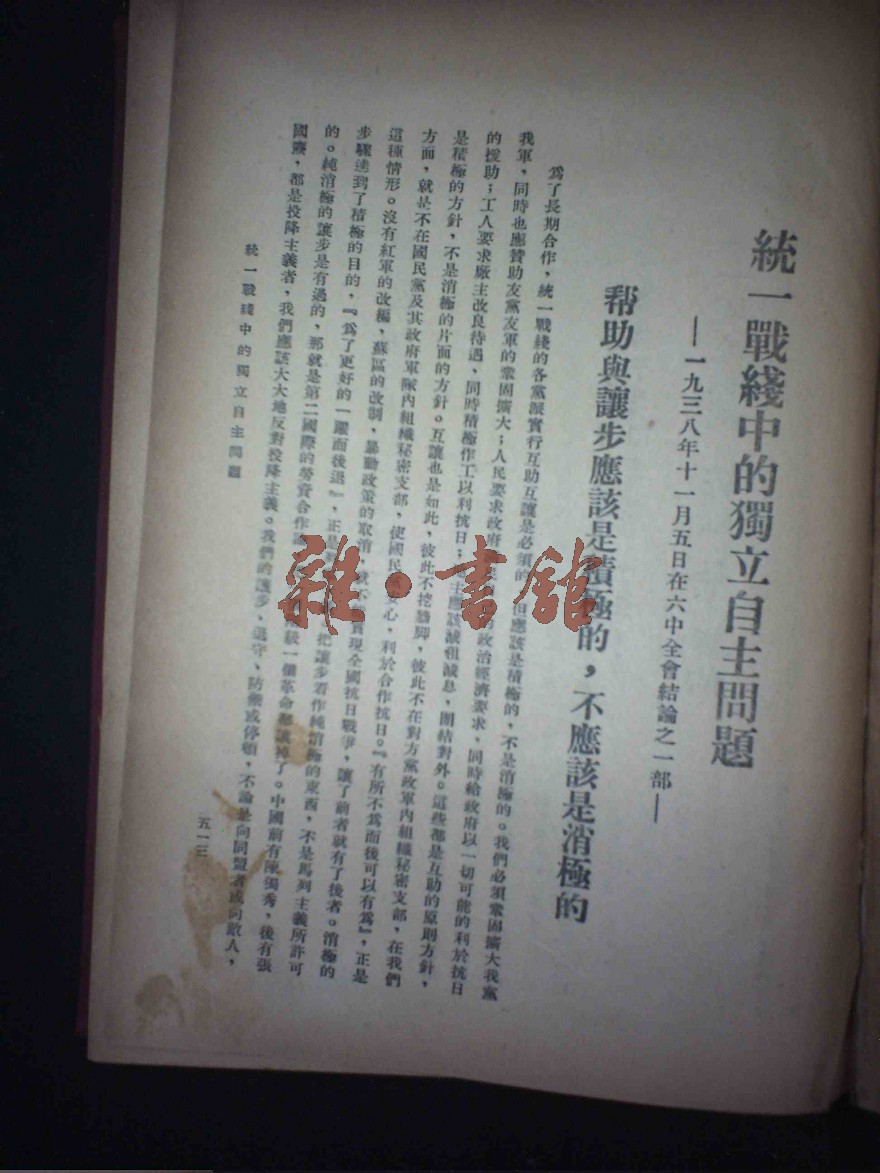 統一戰綫中的獨立自主問題
——一九三八年十一月五日在六中全會結論之一部——
幫助與讓步應該是積極的，不應該是消極的
爲了長期合作，統一戰綫的各黨派實行互助互讓是必須的，但應該是積極的，不是消極的。我們必須鞏固擴大我黨
我軍，同時也應贊助友黨友軍的鞏固擴大；人民要求政府 政治經濟要求，同時給政府以一切可能的利於抗日
的援助；工人要求廠主改良待遇，同時積極作工以利抗日； 主應該減租減息，團結對外。這些都是互助的原則方針，
是積極的方針，不是消極的片面的方針。互讓也是如此，彼此不挖牆脚，彼此不在對方黨政軍內組織秘密支部，在我們
方面，就是不在國民黨及其政府軍隊內組織秘密支部，使國民黨安心，利於合作抗日。『有所不爲而後可以有爲』，正是
這種情形。沒有紅軍的改編，蘇區的改制，暴動政策的取消，就不 實現全國抗日戰爭，讓了前者就有了後者。消極的
步驟達到了積極的目的，『爲了更好的一躍而後退』，正是 把讓步看作純消極的東西，不是馬列主義所許可
的。純消極的讓步是有過的，那就是第二國際的勞資合作 統一個革命都讓掉了。中國前有陳獨秀，後有張
國燾，都是投降主義者，我們應該大大地反對投降主義。我們的讓步、退守、防禦或停頓，不論是向同盟者或向敵人，
統一戰綫中的獨立自主問題
五一三
雜·書館